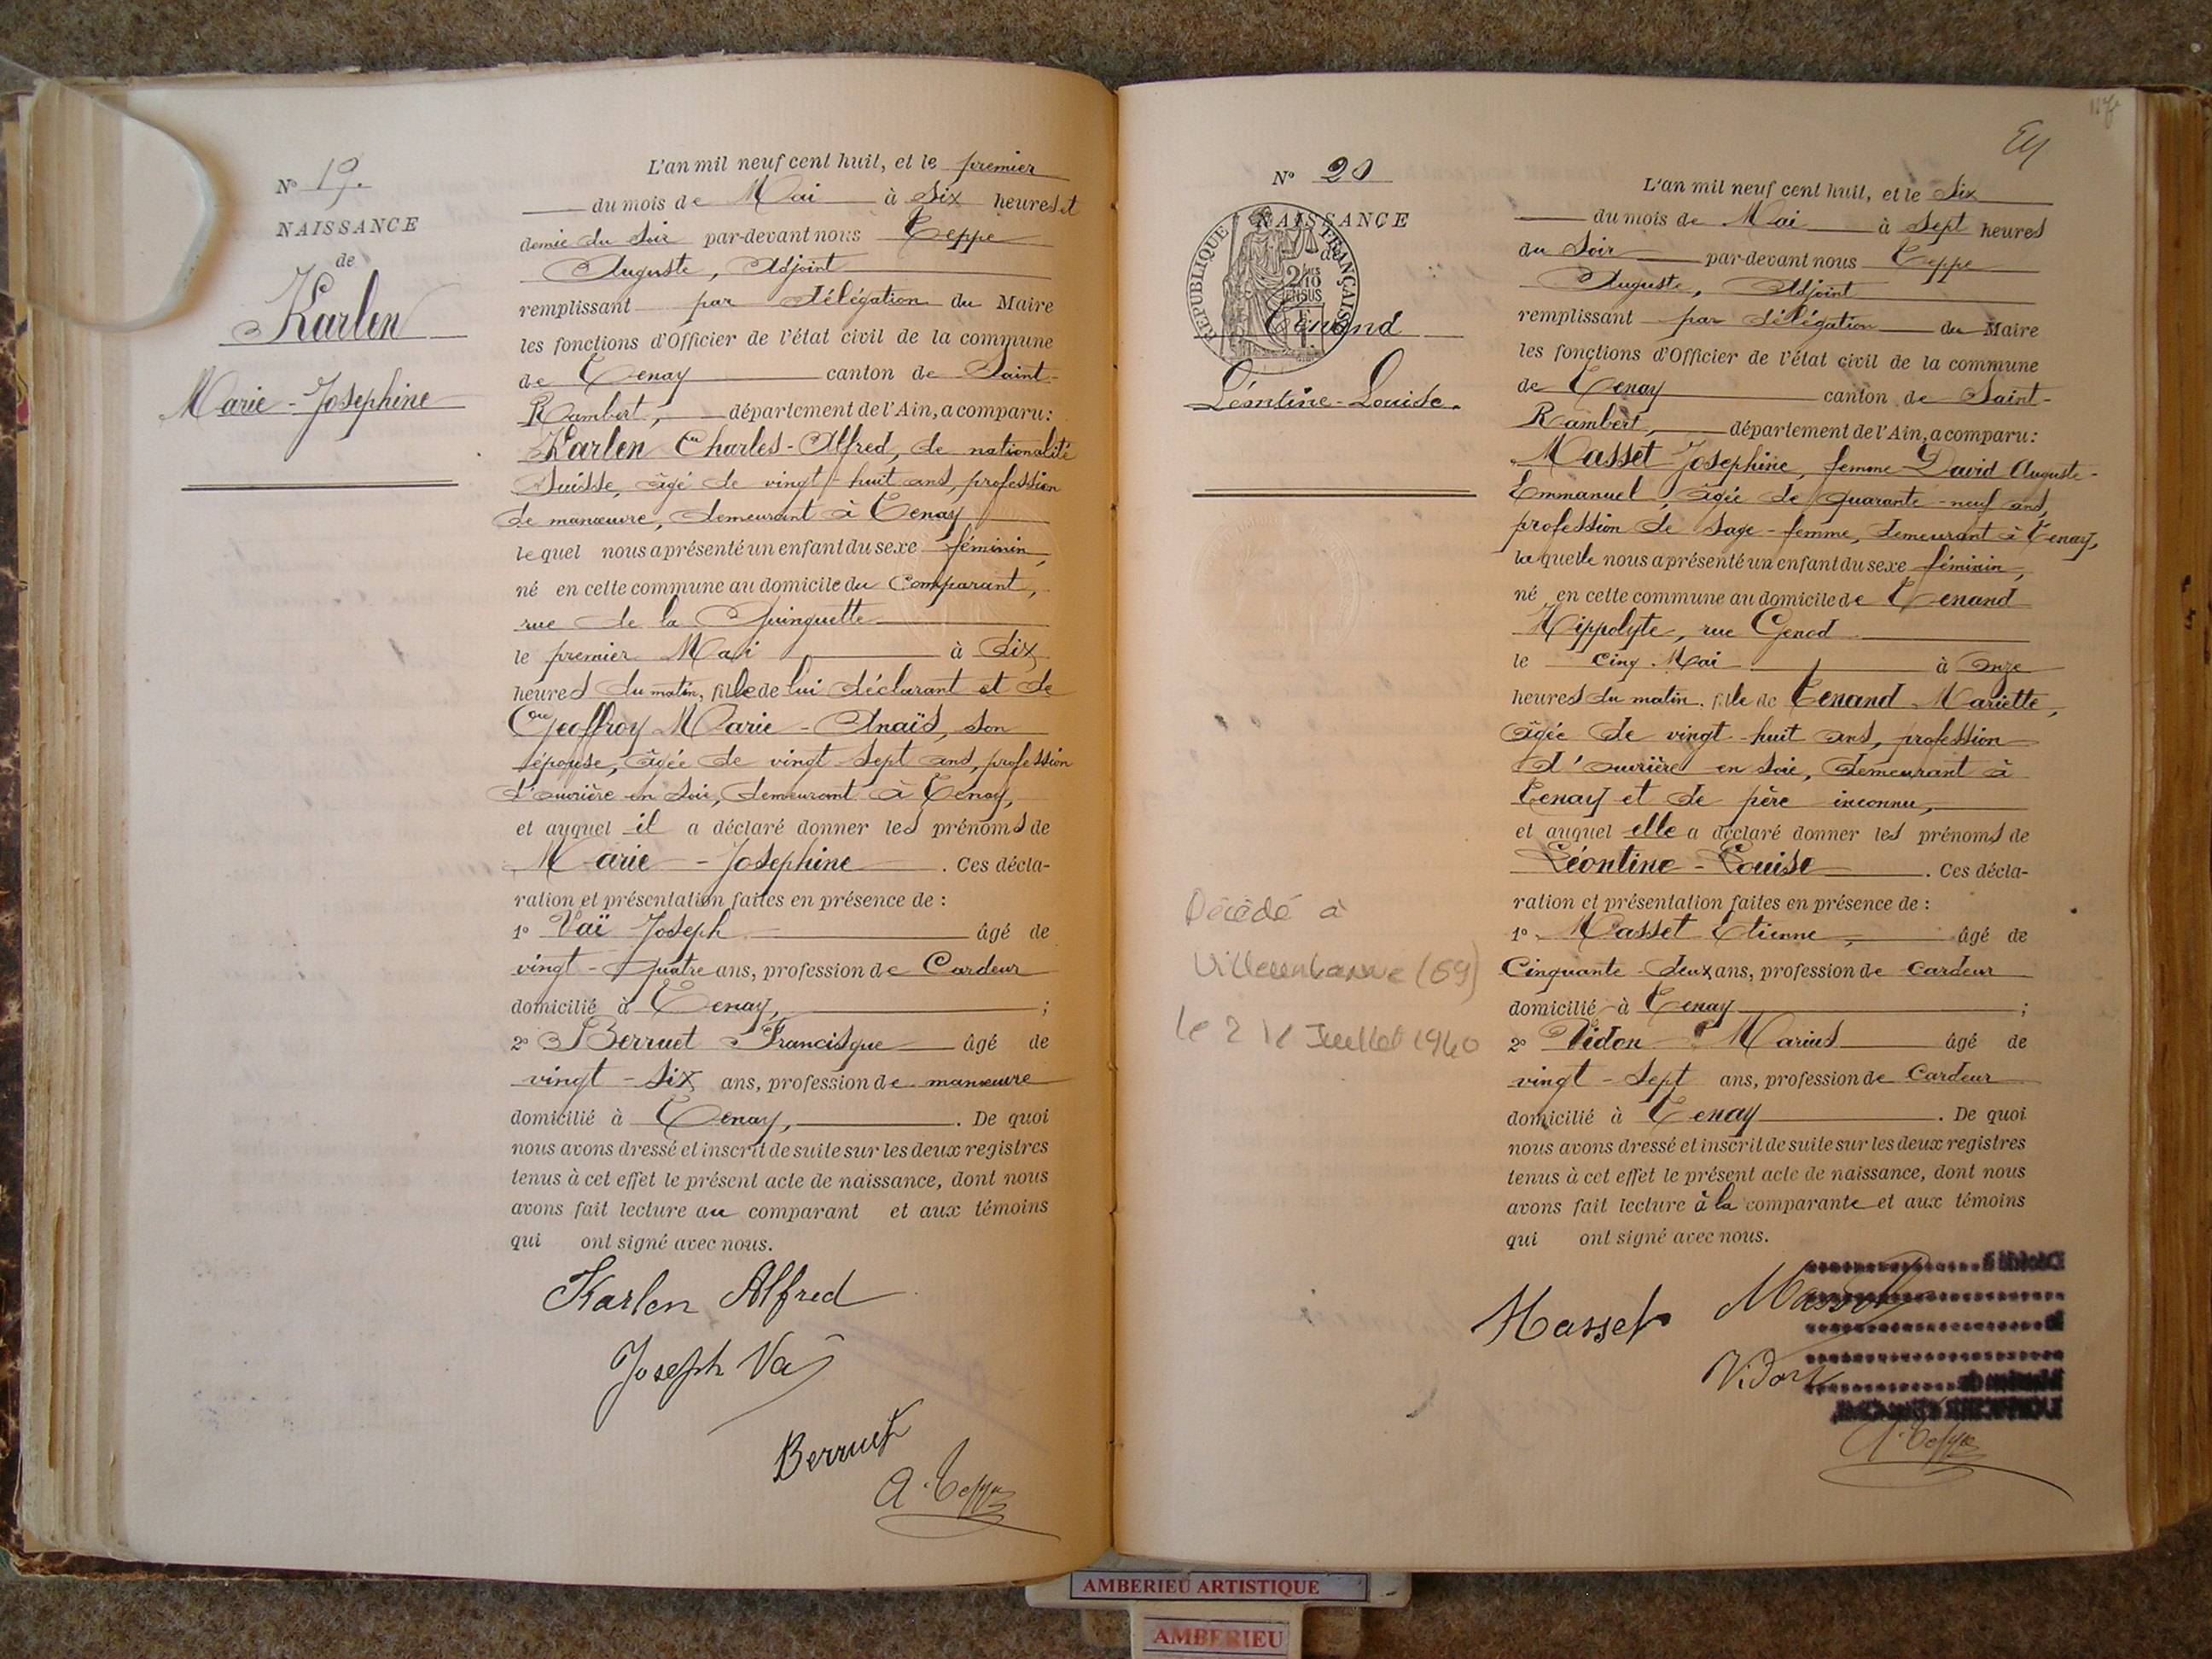 N° 19.
NAISSANCE
de
Karlen
Marie-Josephine
L'an mil neuf cent huit, et le premier
du mois de Mai à Six heures et
demie du Soir par-devant nous Teppe
Auguste, Adjoint
remplissant par délégation du Maire
les fonctions d'Officier de l'état civil de la commune
de Tenay canton de Saint-
Rambert, département de l'Ain, a comparu:
Karlen Charles-Alfred, de nationalité
Suisse, âgé de vingt-huit ans, profession
de manœuvre, demeurant à Tenay
lequel nous a présenté un enfant du sexe féminin,
né en cette commune au domicile du Comparant,
rue de la Guinguette
le premier Mai à dix
heures du matin, fille de lui déclarant et de
Geoffroy Marie-Anaïs, son
épouse, âgée de vingt-sept ans, profession
d'ouvrière en soie, demeurant à Tenay,
et auquel il a déclaré donner les prénoms de
Marie-Josephine. Ces décla-
ration et présentation faites en présence de :
1° Vaï Joseph âgé de
vingt-quatre ans, profession de Cardeur
domicilié à Tenay, ;
2° Berruet Francisque âgé de
vingt-six ans, profession de manœuvre
domicilié à Tenay, . De quoi
nous avons dressé et inscrit de suite sur les deux registres
tenus à cet effet le présent acte de naissance, dont nous
avons fait lecture au comparant et aux témoins
qui ont signé avec nous.
Karlen Alfred
Joseph Vaï
Berruet
A. Teppe
N° 20
NAISSANCE
de
REPUBLIQUE FRANÇAISE
Tenand
Léontine-Louise.
L'an mil neuf cent huit, et le Six
du mois de Mai à Sept heures
du Soir par-devant nous Teppe
Auguste, Adjoint
remplissant par délégation du Maire
les fonctions d'Officier de l'état civil de la commune
de Tenay canton de Saint-
Rambert, département de l'Ain, a comparu:
Masset Josephine, femme David Auguste-
Emmanuel, âgée de quarante-neuf ans,
profession de sage-femme, demeurant à Tenay,
laquelle nous a présenté un enfant du sexe féminin,
né en cette commune au domicile de Tenand
Hippolyte, rue Genod
le cinq Mai à Onze
heures du matin, fille de Tenand Mariette,
âgée de vingt-huit ans, profession
d'ouvrière en soie, demeurant à
Tenay et de père inconnu,
et auquel elle a déclaré donner les prénoms de
Léontine-Louise. Ces décla-
ration et présentation faites en présence de :
1° Masset Etienne, âgé de
Cinquante-deux ans, profession de Cardeur
domicilié à Tenay ;
2° Vidon Marius âgé de
vingt-sept ans, profession de Cardeur
domicilié à Tenay . De quoi
nous avons dressé et inscrit de suite sur les deux registres
tenus à cet effet le présent acte de naissance, dont nous
avons fait lecture à la comparante et aux témoins
qui ont signé avec nous.
Décédé à
Villeurbanne (69)
Juillet 1940
Masset Masset
Vidon
A. Teppe
AMBERIEU ARTISTIQUE
AMBERIEU